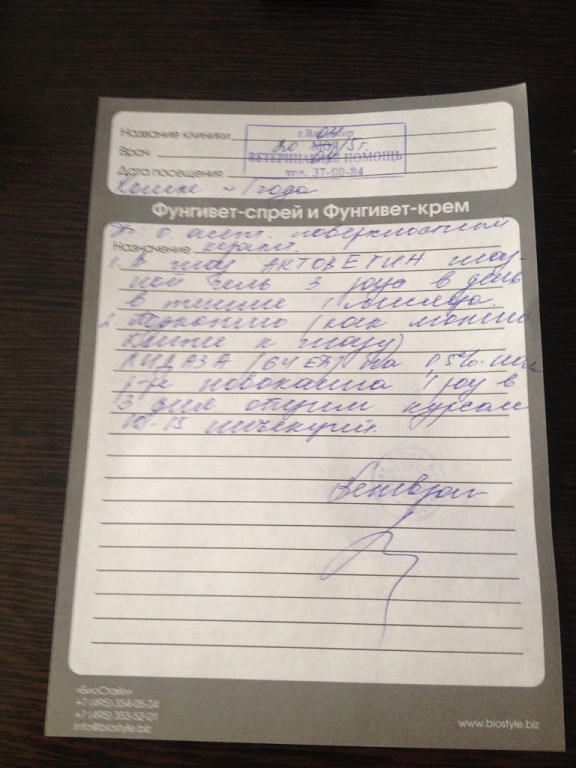 Название клиники
г.Владимир
Врач
20 04 15г.
МОЯ
ВЕТЕРИНАРНАЯ ПОМОЩЬ
Дата посещения
тел. 37-00-84
Кошке ~ 1 года
Фунгивет-спрей и Фунгивет-крем
D: о. асепт. поверхностный
Назначение кератит.
1. В глаз АКТОВЕГИН глаз-
ной гель 3 раза в день
в течение 1 месяца.
2. Подкожно (как можно
ближе к глазу)
ЛИДАЗА (64 ЕД) на 0,5%-ном
р-ре новокаина 1 раз в
3 дня общим курсом
10-15 инъекций.
Ветврач
«БиоСтайл»
+7 (495) 354-05-24
+7 (495) 353-52-01
info@biostyle.biz
www.biostyle.biz